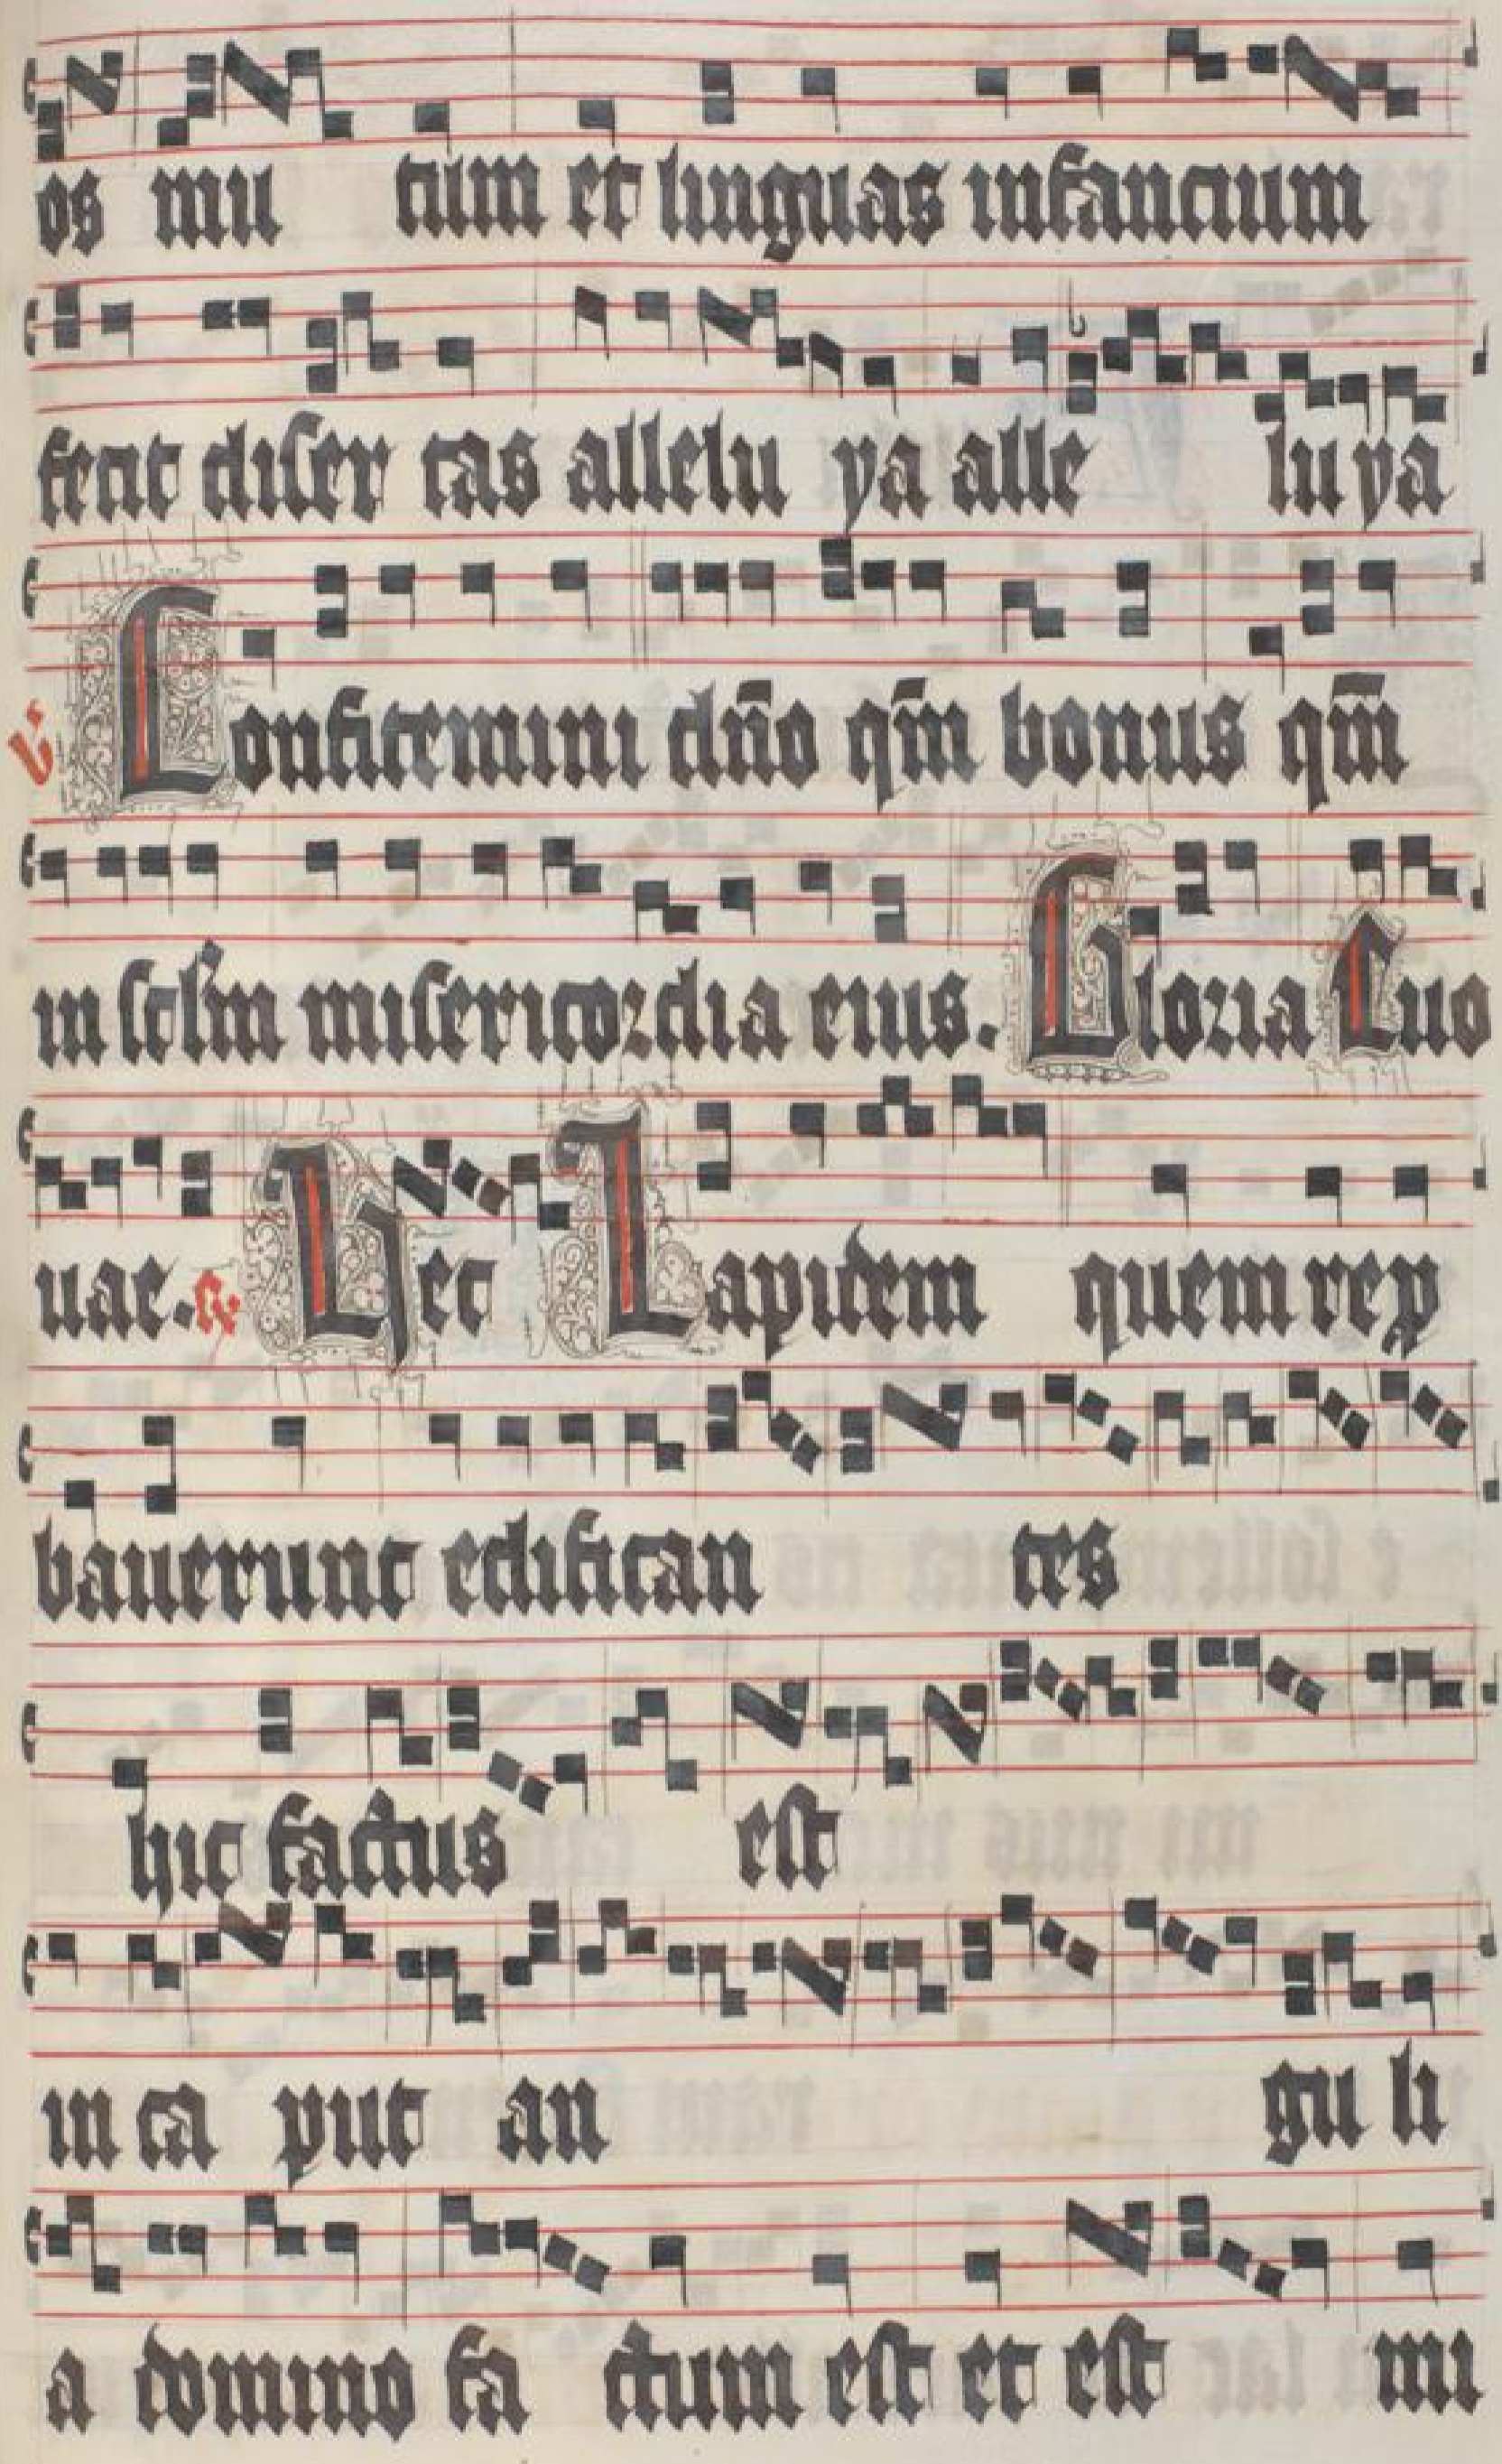 os mu tum et linguas infantium
fecit diser tas allelu ya alle lu ya
V. Confitemini dño qm̄ bonus qm̄
in sclm̄ misericordia eius. Gloria Euo
uae. R. Hec Lapidem quem rep
bauerunt edifican tes
hic factus est
in ca put an gu li
a domino fa ctum est et est mi